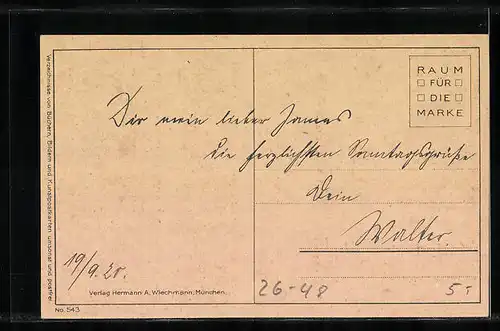 RAUM
FÜR
DIE
MARKE
Dir mein lieber James
die herzlichsten Sonntagsgrüße
Dein
Walter.
19/9.20.
26-48
5.-
Verlag Hermann A. Wiechmann, München.
No. 543
Verzeichnisse von Büchern, Bildern und Kunstpostkarten umsonst und postfrei